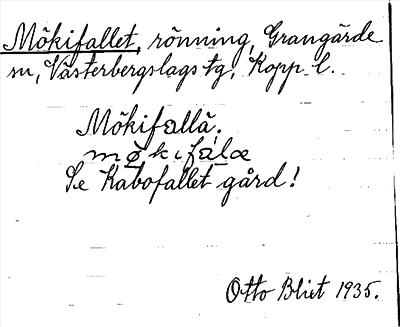 Mökifallet, rönning, Grangärde
sn, Västerbergslags tg, Kopp. l.
Mökifallä.
mökifalæ
Se Kabofallet gård!
Otto Blixt 1935.